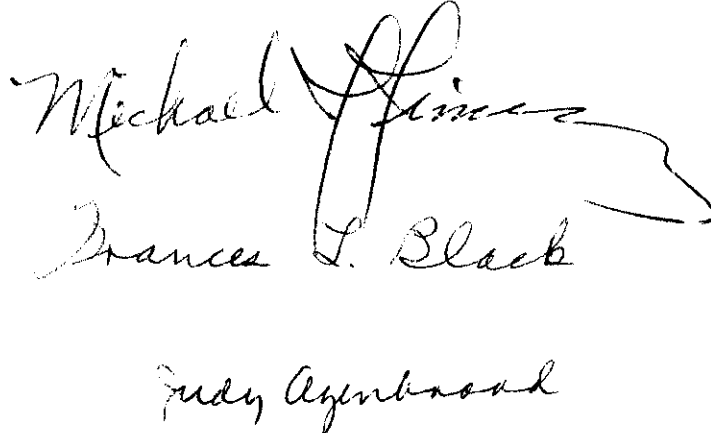 Michael
Frances L. Black
Judy Azenbrood